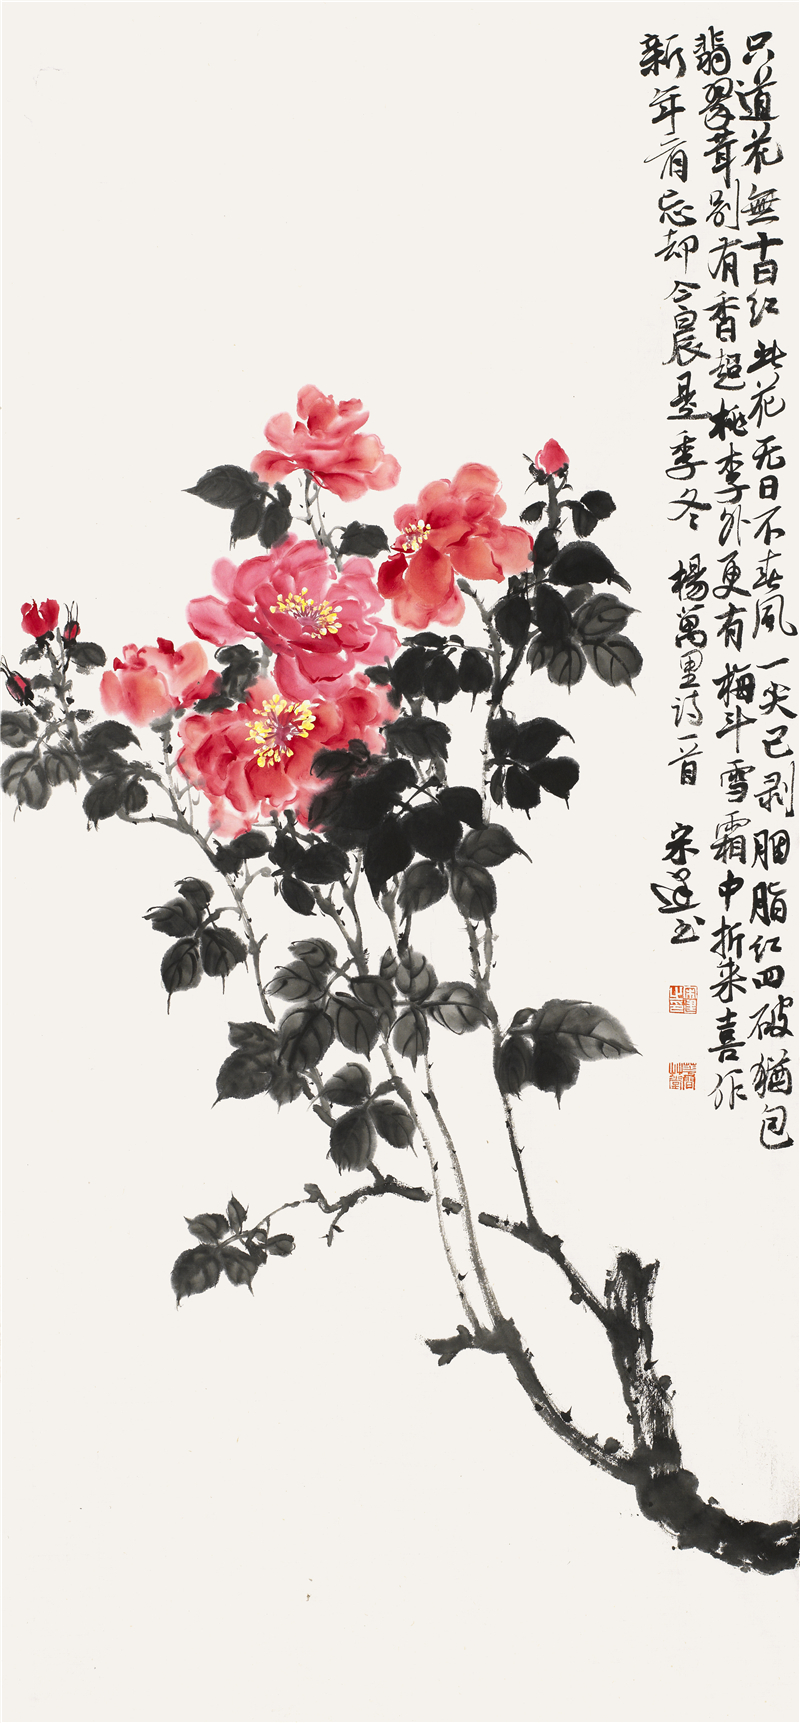 只道花無十日红此花无日不春风一尖已剥胭脂红四破猶包
翡翠茸别有香超桃李外更有梅斗雪霜中折来喜作
新年看忘却今晨是季冬 楊萬里诗一首 宋书